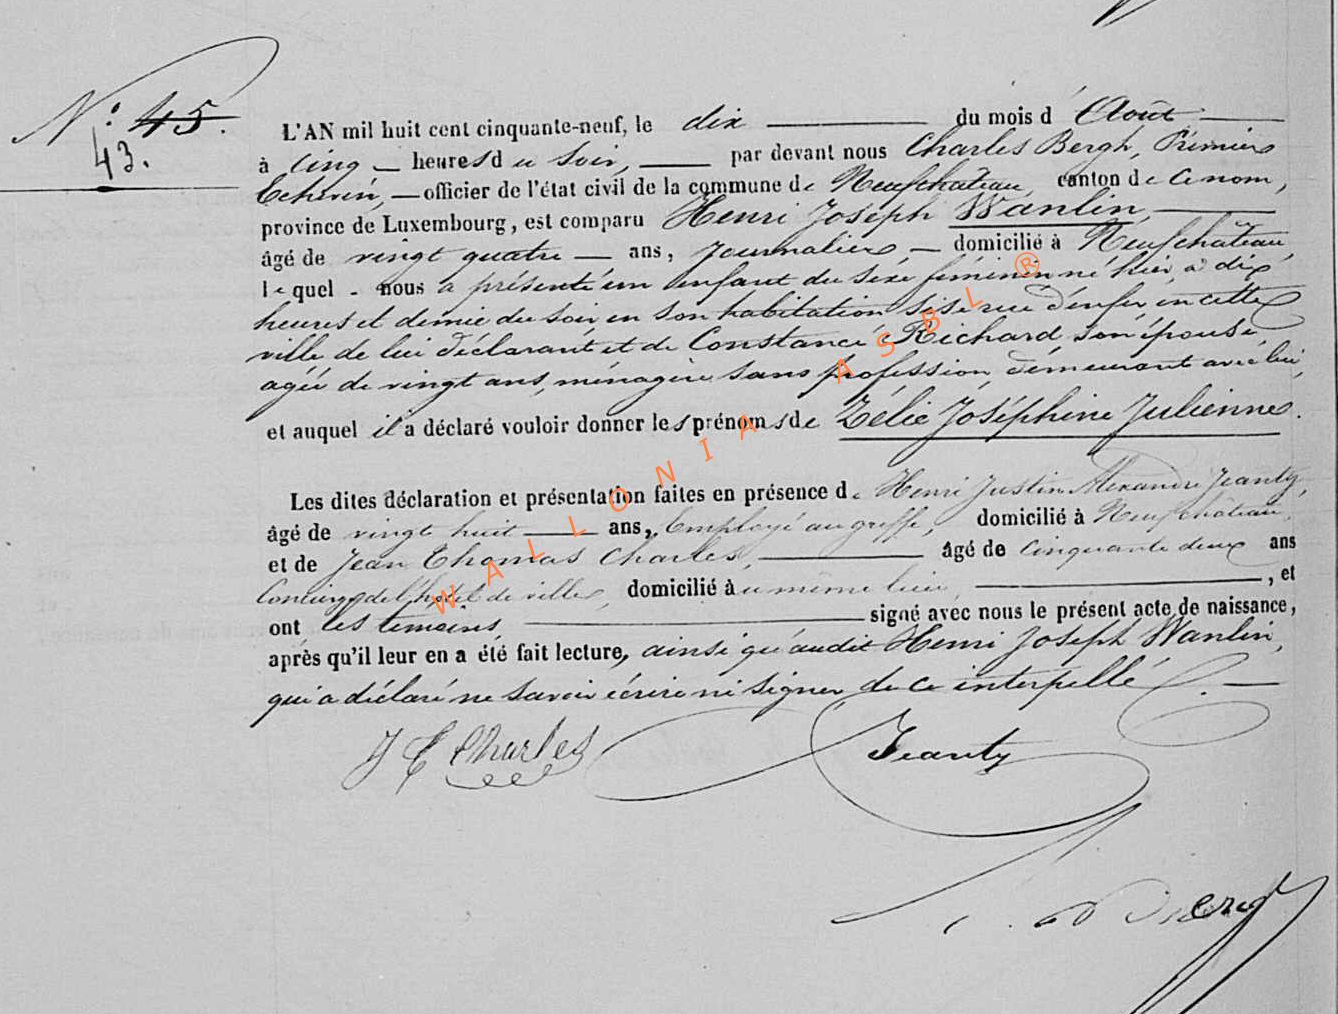 N° 45.
43.
L'AN mil huit cent cinquante-neuf, le dix du mois d'Août
à cinq heures du soir, par devant nous Charles Bergh, Prémier
Echevin, officier de l'état civil de la commune de Neufchateau, canton de ce nom,
province de Luxembourg, est comparu Henri Joseph Wanlin,
âgé de vingt quatre ans, journalier, domicilié à Neufchâteau,
lequel nous a présenté un enfant du sexe féminin né hier à dix
heures et demie du soir en son habitation sise rue d'enfer en cette
ville de lui déclarant et de Constance Richard son épouse
agée de vingt ans, ménagère sans profession, demeurant avec lui,
et auquel il a déclaré vouloir donner les prénoms de Zélie Joséphine Julienne.
Les dites déclaration et présentation faites en présence de Henri Justin Alexandre Jeanty,
âgé de vingt huit ans, Employé au greffe, domicilié à Neufchâteau,
et de Jean Thomas Charles, âgé de cinquante deux ans
Concierge de l'hotel de ville, domicilié au même lieu, , et
ont les temoins signé avec nous le présent acte de naissance,
après qu'il leur en a été fait lecture, ainsi qu'audit Henri Joseph Wanlin,
qui a déclaré ne savoir écrire ni signer de ce interpellé.
J T Charles Jeanty
WALLONIA ASBL ®